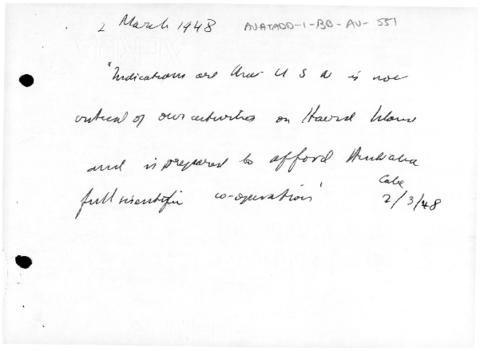 2 March 1948 AVATADD-1-BB-AU-551
"Indications are that U S A is not
critical of our activities on Heard Island
and is prepared to afford Australia
full scientific co-operation"
Cable
2/3/48